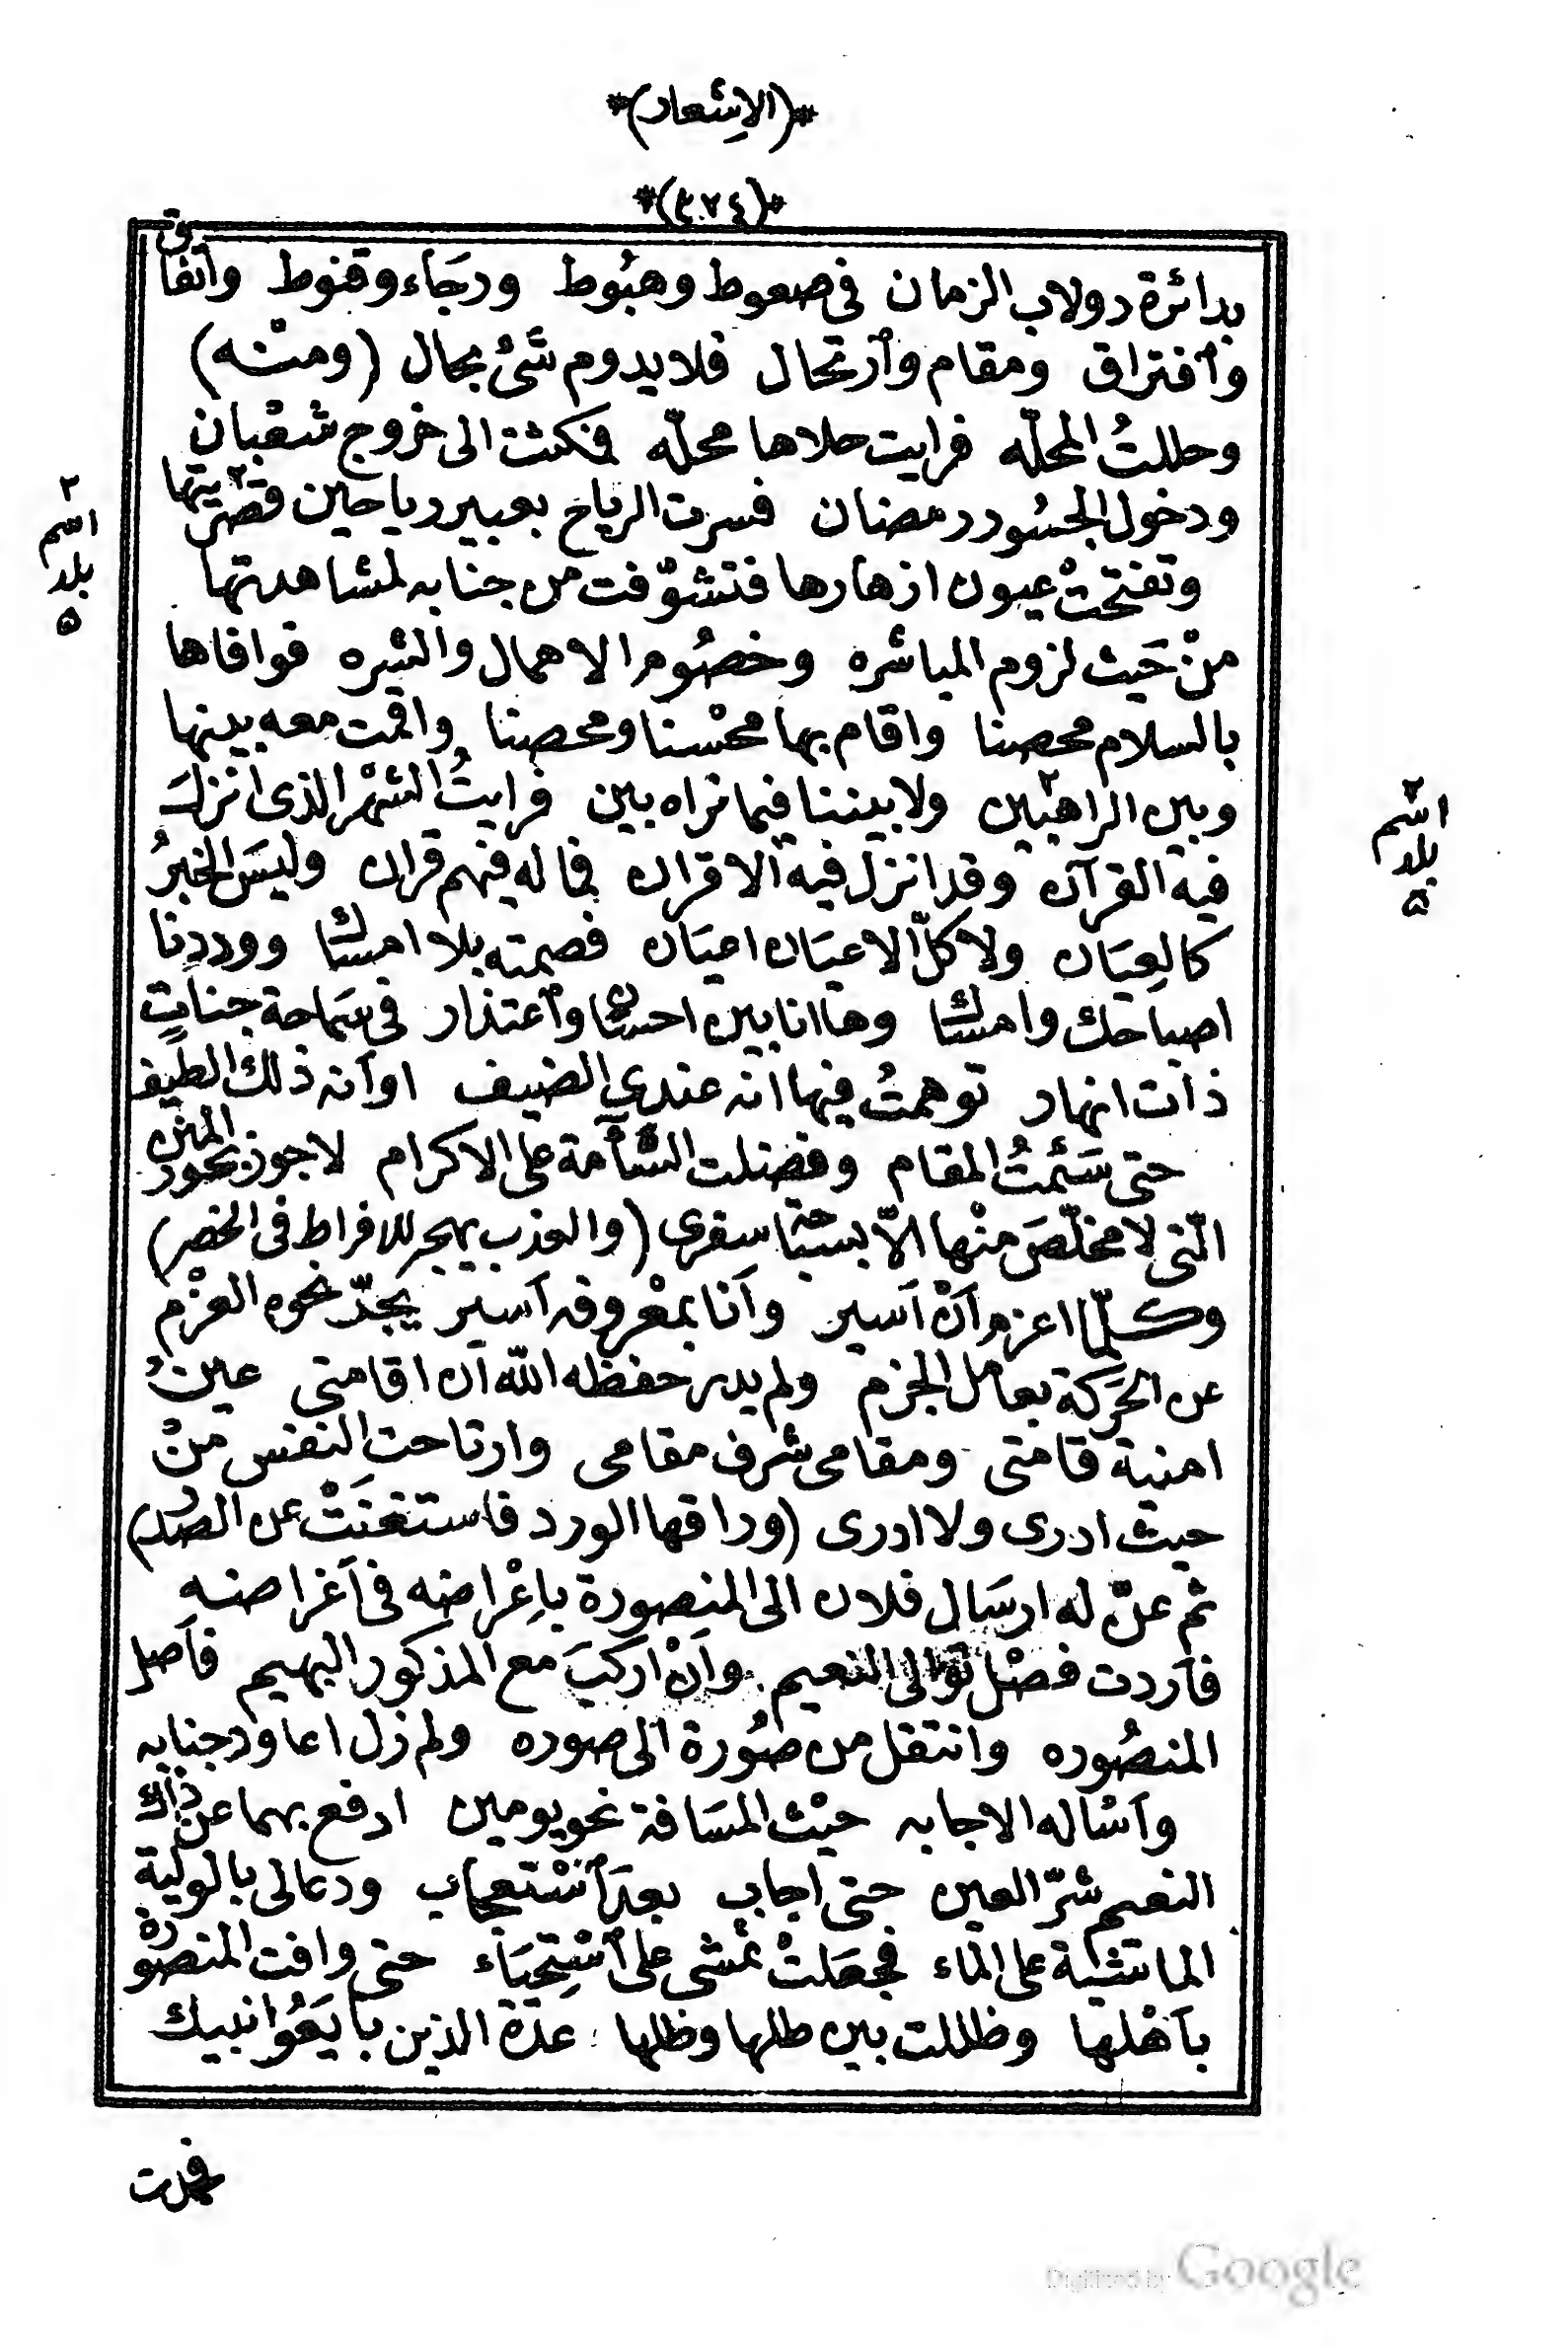 *(الاشعار)*
*(٤٧٤)*
بدائرة دولاب الزمان فى صعوط وهبُوط ورجَاء وقنوط واتفاق
وٱفتراق ومقام وٱرتحال فلا يدوم شَىْ بحال (ومنْه)
وحللتُ المحلّه فرايت حلاها محلّه فمكثت الى خروج شعْبان
ودخول الجسُور رمضان فسرت الرياح بعبير رياحين قصَريتها
وتفتحتْ عيون ازهارها فتشوّفت من جنابه لمشاهدتها
منْ حَيث لزوم المباشره وخصُوم الاهمال والشره فوافاها
بالسلام محصنا واقام بها محْسنا ومحصنا واقمت معه بينها
وبين الراهبَين ولا بيننا فيما نراه بين فرايتُ الشهْر الذى انزلَ
فيه القرآن وقد انزل فيه الاقران فماله فيهم قران وليسَ الخبرُ
كالعِيَان ولا كلّ الاعيَان اعيَان فصمته بلا امساك ووردنا
اصباحك وامساك وها انا بين احسان وٱعتذار فى سَاحة جناتٍ
ذات انهار توهمتُ فيها انه عندى الضيف او انه ذلك الطيف
حتى سَئمتُ المقام وفضلت السَّأمة على الاكرام لاجوز بحور المنن
الّتى لا مخلّصَ منْها الاّ بسباحة سفرى (والعذب يهجر للافراط فى الخصر)
وكلّما اعزم اَنْ اَسير واَنا بمعْروفه اَسير يجدّ نحوه العزْم
عن الحَركة بعامل الجزم ولم يدر حفظه الله اَن اقامتى عينُ
امنية قامتى ومقامى شرف مقامى وارتاحت النفس منْ
حيث ادرى ولا ادرى (وراقها الورد فاستغنَتْ عن الصّدر)
ثم عنّ له ارسَال فلان الى المنصورة باِغْراضه فى اَغراضه
فاَردت فصْل توالى النعيم واَنْ اركبَ مع المذكور البهيم فاَصل
المنصُوره وانتقل من صُورة الى صوره ولم زل اعاود جنابه
واَسْاله الاجابه حيْث المسَافة نحو يومين ادفع بهما عن ذاك
النعيم شرّ العين حتى اجاب بعدَ ٱسْتعجاب ودعا لى بالولية
الماشية على الماء فجعَلتْ تمشى على ٱسْتِحيَاء حتى وافت المنصُورة
بآهْلها وظللت بين طلها وظلها عدّة الذين بايَعُوا نبيك
فمرت
٢
اسْم
بلد
٥
٢
اسْم
بلد
٥
Digitized by Google